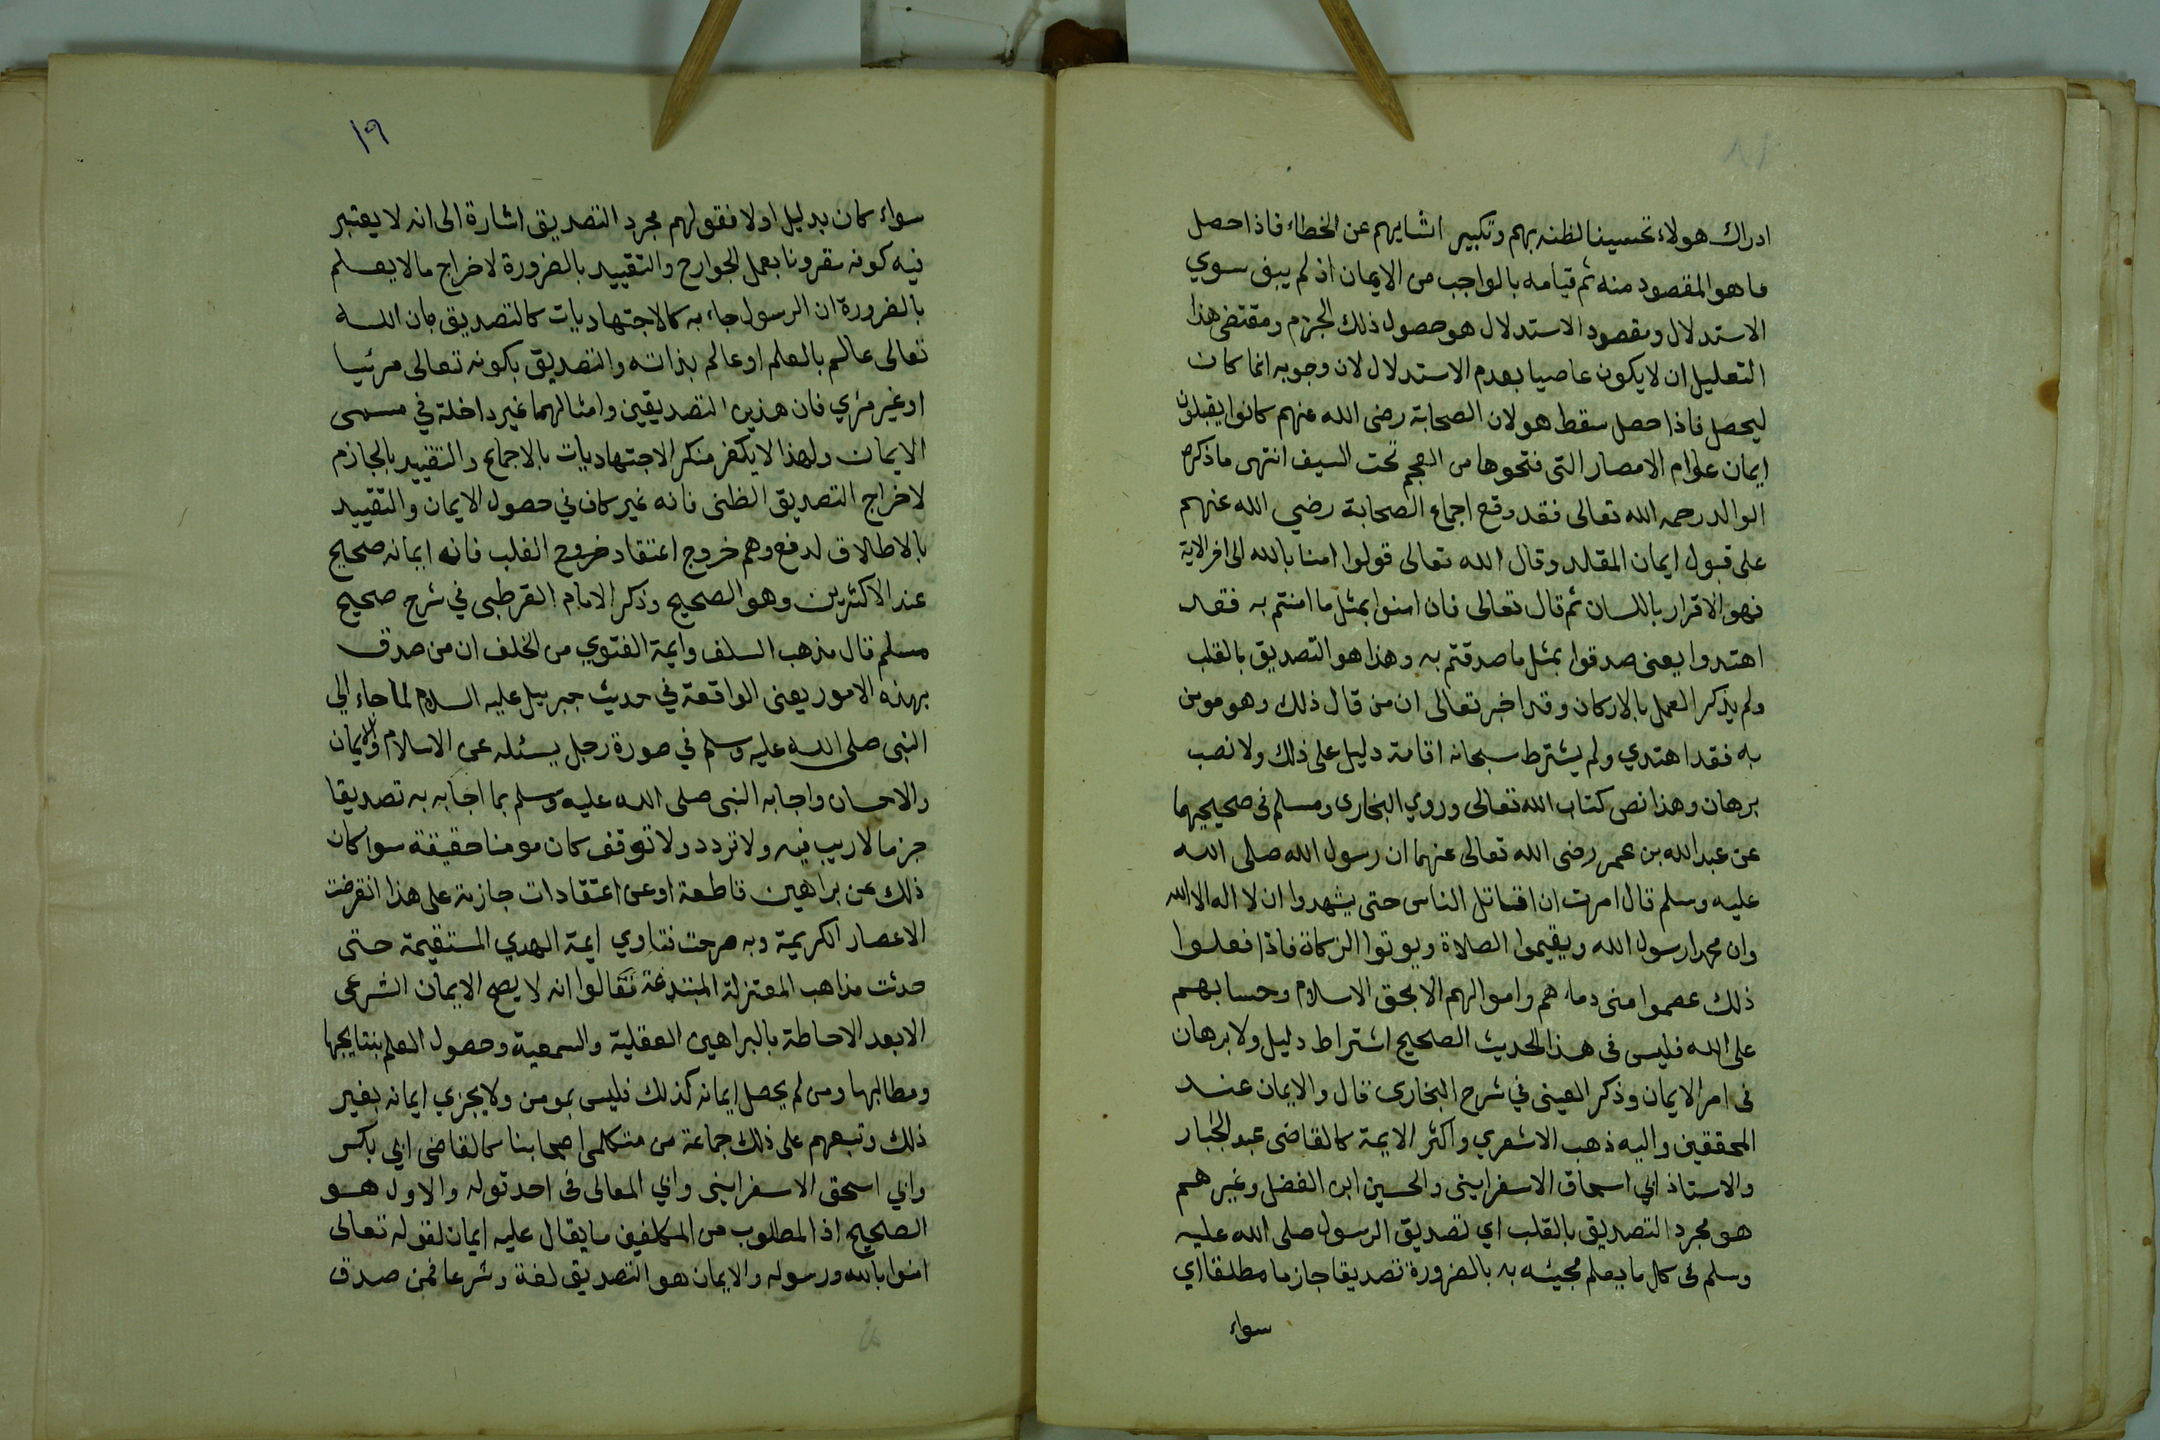 ادراك هولاء تحسينا لظنه بهم وتكبير اشايهم عن الخطاء فاذا حصل
ما هو المقصود منه ثم قيامه بالواجب من الايمان اذ لم يبق سوي
الاستدلال ومقصود الاستدلال هو حصول ذلك الجزم ومقتضى هذا
التعليل ان لا يكون عاصيا بعدم الاستدلال لان وجوبه انما كان
ليحصل فاذا حصل سقط هو لان الصحابة رضى الله عنهم كانوا يقبلون
ايمان عوام الامصار التى فتحوها من العجم تحت السيف انتهى ما ذكره
الوالد رحمه الله تعالى فقد وقع اجماع الصحابة رضي الله عنهم
على قبول ايمان المقلد وقال الله تعالى قولوا امنا بالله الى اخر الاية
فهو الاقرار باللسان ثم قال تعالى فان امنوا بمثل ما امنتم به فقد
اهتدوا يعنى صدقوا بمثل ما صدقتم به وهذا هو التصديق بالقلب
ولم يذكر العمل بالاركان وقد اخبر تعالى ان من قال ذلك وهو مومن
به فقد اهتدي ولم يشترط سبحانه اقامة دليل على ذلك ولا نصب
برهان وهذا نص كتاب الله تعالى وروي البخارى ومسلم فى صحيحيهما
عن عبد الله بن عمر رضى الله تعالى عنهما ان رسول الله صلى الله
عليه وسلم قال امرت ان اقاتل الناس حتى يشهدوا ان لا اله الا الله
وان محمدا رسول الله ويقيموا الصلاة ويوتوا الزكاة فاذا فعلوا
ذلك عصموا منى دماءهم واموالهم الا بحق الاسلام وحسابهم
على الله فليس فى هذا الحديث الصحيح اشتراط دليل ولا برهان
فى امر الايمان وذكر العينى في شرح البخارى قال والايمان عند
المحققين واليه ذهب الاشعري واكثر الايمة كالقاضى عبد الجبار
والاستاذ ابي اسحاق الاسفراينى والحسين ابن الفضل وغيرهم
هو مجرد التصديق بالقلب اي تصديق الرسول صلى الله عليه
وسلم فى كل ما يعلم مجيئه به بالضرورة تصديقا جازما مطلقا اي
سواء
١٩
سواء كان بدليل اولا فقولهم مجرد التصديق اشارة الى انه لا يعتبر
فيه كونه مقرونا بعمل الجوارح والتقييد بالضرورة لاخراج ما لا يعلم
بالضرورة ان الرسول جاء به كالاجتهاديات كالتصديق بان الله
تعالى عالم بالعلم او عالم بذاته والتصديق بكونه تعالى مرئيا
او غير مرئي فان هذين التصديقين وامثالهما غير داخلة في مسمى
الايمان ولهذا لا يكفر منكر الاجتهاديات بالاجماع والتقييد بالجازم
لاخراج التصديق الظنى فانه غير كاف في حصول الايمان والتقييد
بالاطلاق لدفع وهم خروج اعتقاد خروج القلب فانه ايمانه صحيح
عند الاكثرين وهو الصحيح وذكر الامام القرطبى في شرح صحيح
مسلم قال مذهب السلف وايمة الفتوي من الخلف ان من صدق
بهذه الامور يعنى الواقعة في حديث جبريل عليه السلام لما جاء الي
النبى صلى الله عليه وسلم في صورة رجل يسئله عن الاسلام والايمان
والاحسان واجابه النبى صلى الله عليه وسلم بما اجابه به تصديقا
جزما لا ريب فيه ولا تردد ولا توقف كان مومنا حقيقة سوا كان
ذلك عن براهين قاطعة او عن اعتقادات جازمة على هذا انقرضت
الاعصار الكريمة وبه صرحت فتاوي ايمة الهدي المستقيمة حتى
حدثت مذاهب المعتزلة المبتدعة فقالوا انه لا يصح الايمان الشرعى
الا بعد الاحاطة بالبراهين العقلية والسمعية وحصول العلم بنتايجها
ومطالبها ومن لم يحصل ايمانه كذلك فليس بمومن ولا يجزي ايمانه بغير
ذلك وتبعهم على ذلك جماعة من متكلمى اصحابنا كالقاضى ابي بكر
وابي اسحق الاسفراينى وابي المعالى فى احد قوله والاول هو
الصحيح اذ المطلوب من المكلفين ما يقال عليه ايمان لقوله تعالى
امنوا بالله ورسوله والايمان هو التصديق لغة وشرعا فمن صدق